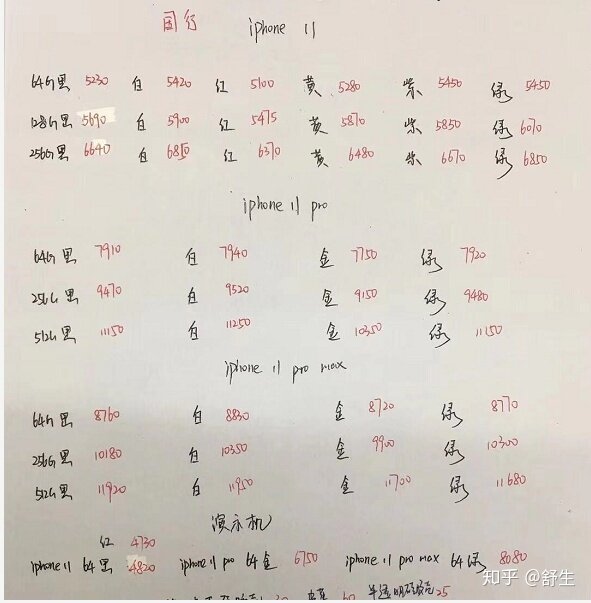 国行 iphone 11
64G黑 5230 白 5420 红 5100 黄 5280 紫 5450 绿 5450
128G黑 5690 白 5900 红 5475 黄 5870 紫 5850 绿 6070
256G黑 6640 白 6850 红 6370 黄 6480 紫 6670 绿 6850
iphone 11 pro
64G黑 7910 白 7940 金 7750 绿 7920
256G黑 9470 白 9520 金 9150 绿 9480
512G黑 11150 白 11250 金 10350 绿 11150
iphone 11 pro max
64G黑 8760 白 8830 金 8720 绿 8770
256G黑 10180 白 10350 金 9900 绿 10300
512G黑 11920 白 11950 金 11700 绿 11680
演示机
红 4730
iphone 11 64黑 4820 iphone 11 pro 64金 6750 iphone 11 pro max 64绿 8080
60 半透明 25
知乎 @舒生